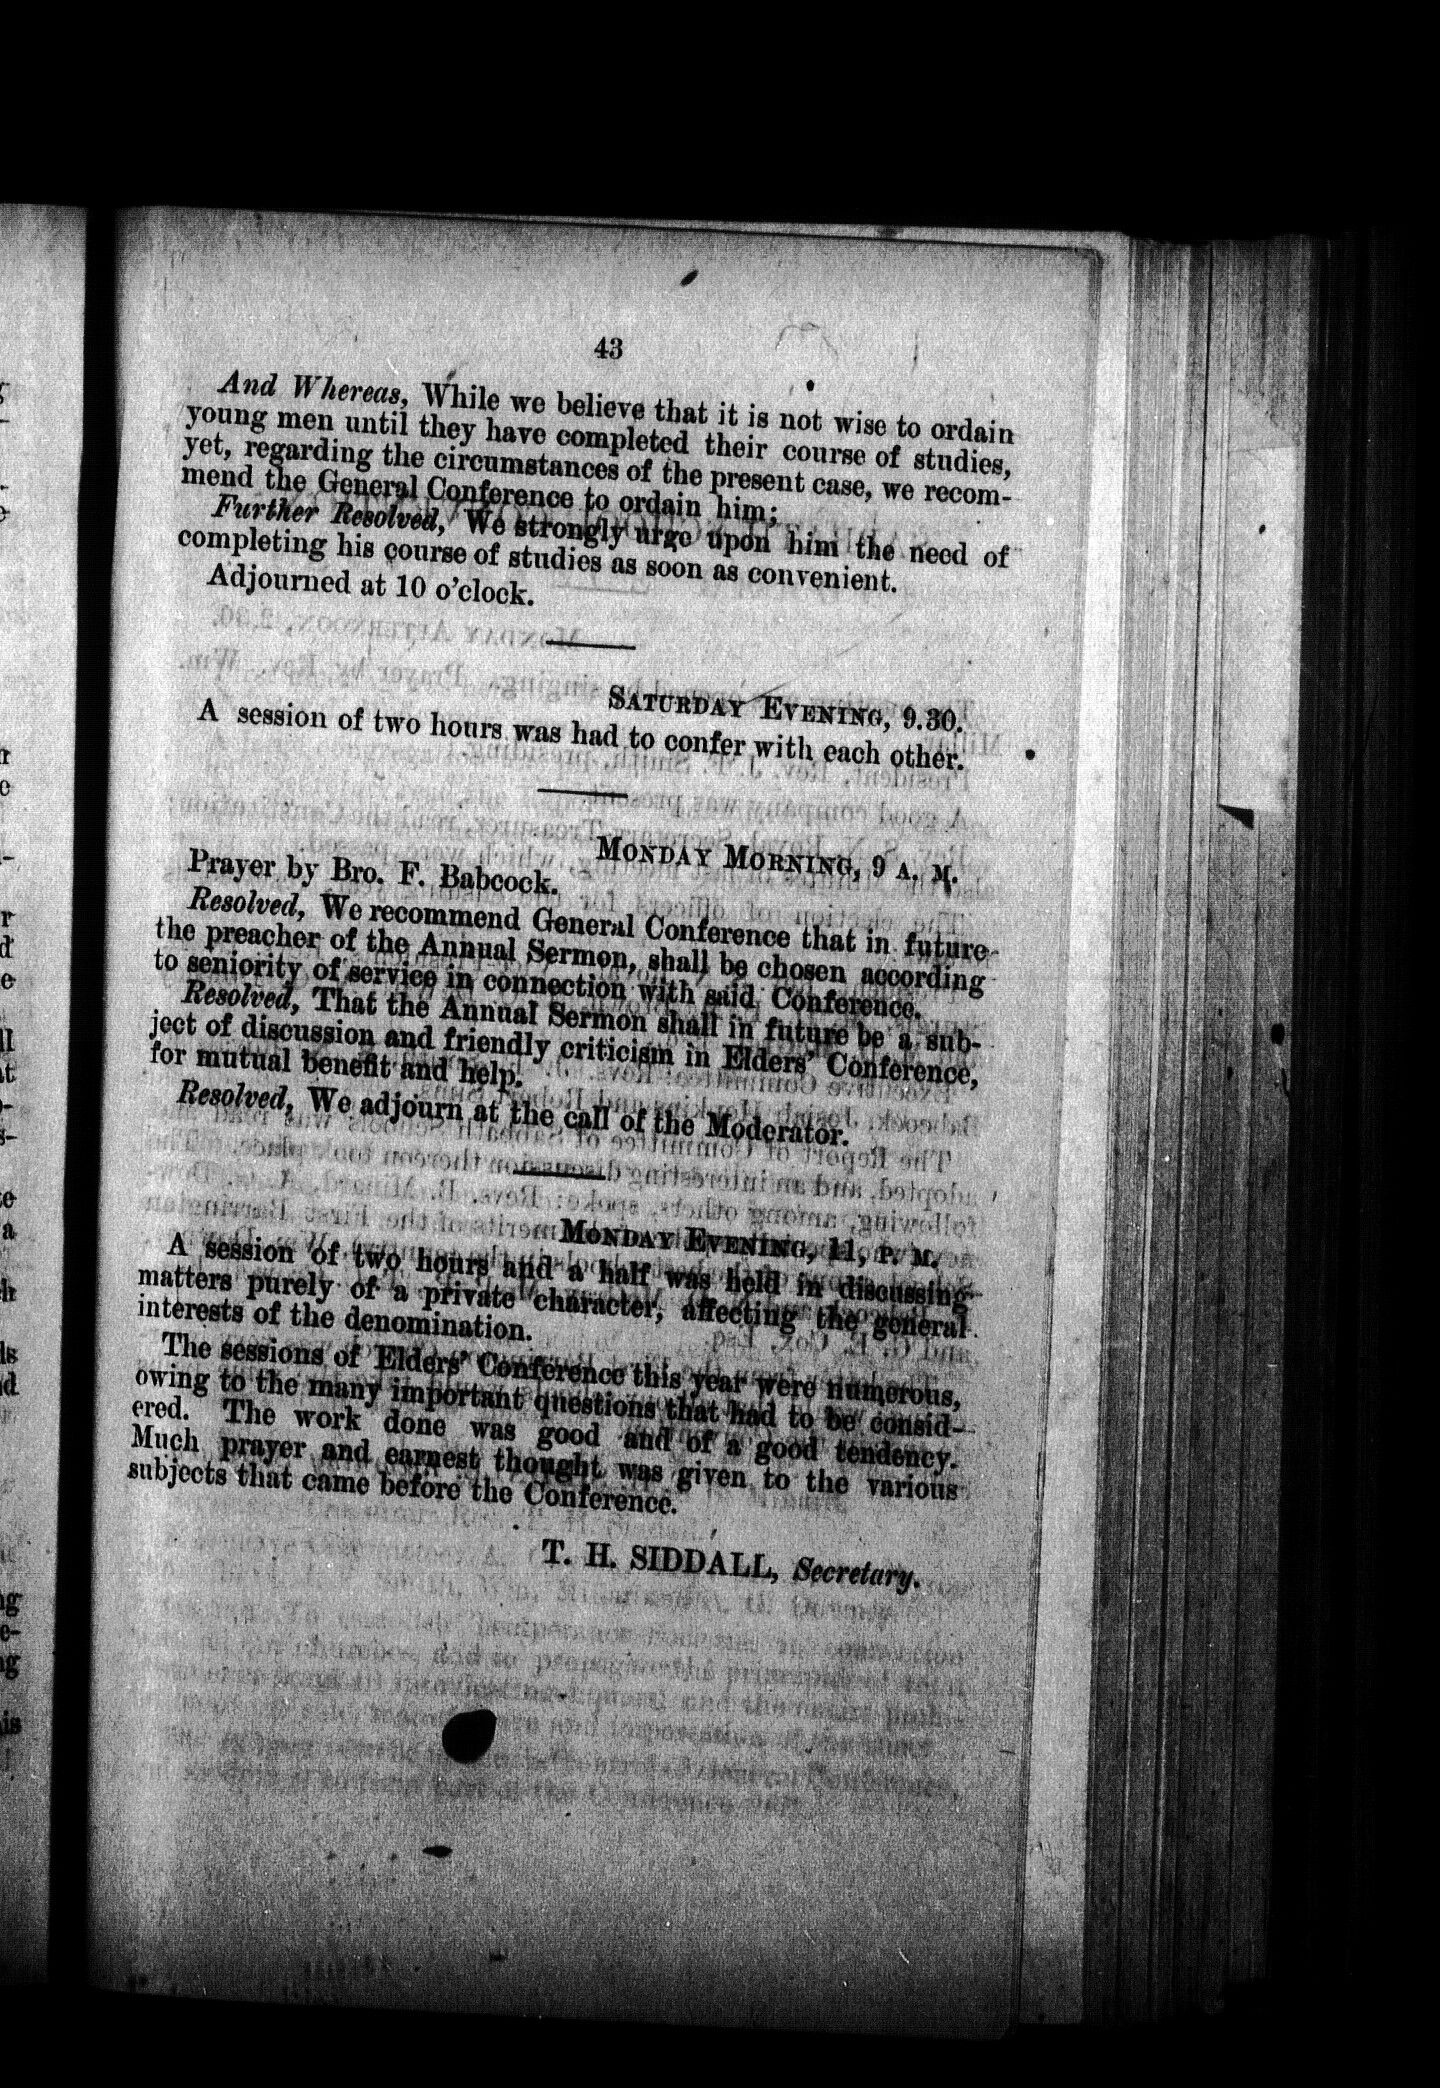 43
And Whereas, While we believe that it is not wise to ordain
young men until they have completed their course of studies,
yet, regarding the circumstances of the present case, we recom-
mend the General Conference to ordain him;
Further Resolved, We strongly urge upon him the need of
completing his course of studies as soon as convenient.
Adjourned at 10 o'clock.
SATURDAY EVENING, 9.30.
A session of two hours was had to confer with each other.
MONDAY MORNING, 9 A. M.
Prayer by Bro. F. Babcock.
Resolved, We recommend General Conference that in future
the preacher of the Annual Sermon, shall be chosen according
to seniority of service in connection with said Conference.
Resolved, That the Annual Sermon shall in future be a sub-
ject of discussion and friendly criticism in Elders' Conference,
for mutual benefit and help.
Resolved, We adjourn at the call of the Moderator.
MONDAY EVENING, 11, P. M.
A session of two hours and a half was held in discussing
matters purely of a private character, affecting the general
interests of the denomination.
The sessions of Elders' Conference this year were numerous,
owing to the many important questions that had to be consid-
ered. The work done was good and of a good tendency.
Much prayer and earnest thought was given to the various
subjects that came before the Conference.
T. H. SIDDALL, Secretary.